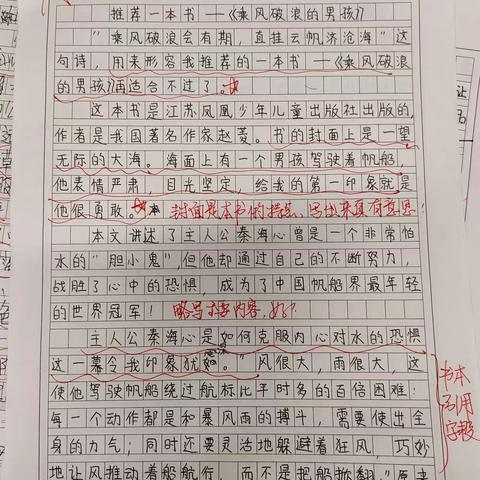 推荐一本书——《乘风破浪的男孩》
"乘风破浪会有期，直挂云帆济沧海"这
句诗，用来形容我推荐的一本书——《乘风破浪
的男孩》再适合不过了。
这本书是江苏凤凰少年儿童出版社出版的，
作者是我国著名作家赵菱。书的封面上是一望
无际的大海。海面上有一个男孩驾驶着帆船，
他表情严肃，目光坚定，给我的第一印象就是
他很勇敢。
封面是本书的 写出来真有意思！
本文讲述了主人公秦海心曾是一个非常怕
水的"胆小鬼"，但他却通过自己的不断努力，
战胜了心中的恐惧，成为了中国帆船界最年轻
的世界冠军！
略写本书内容，好！
主人公秦海心是如何克服内心对水的恐惧
这一幕令我印象犹如。"风很大，雨很大，这
使他驾驶帆船绕过航标比平时多的百倍困难：
每一个动作都是和暴风雨的搏斗，需要使出全
身的力气；同时还要灵活地躲避着狂风，巧妙
地让风推动着船航行，而不是把船掀翻。"
书本
引用
字段